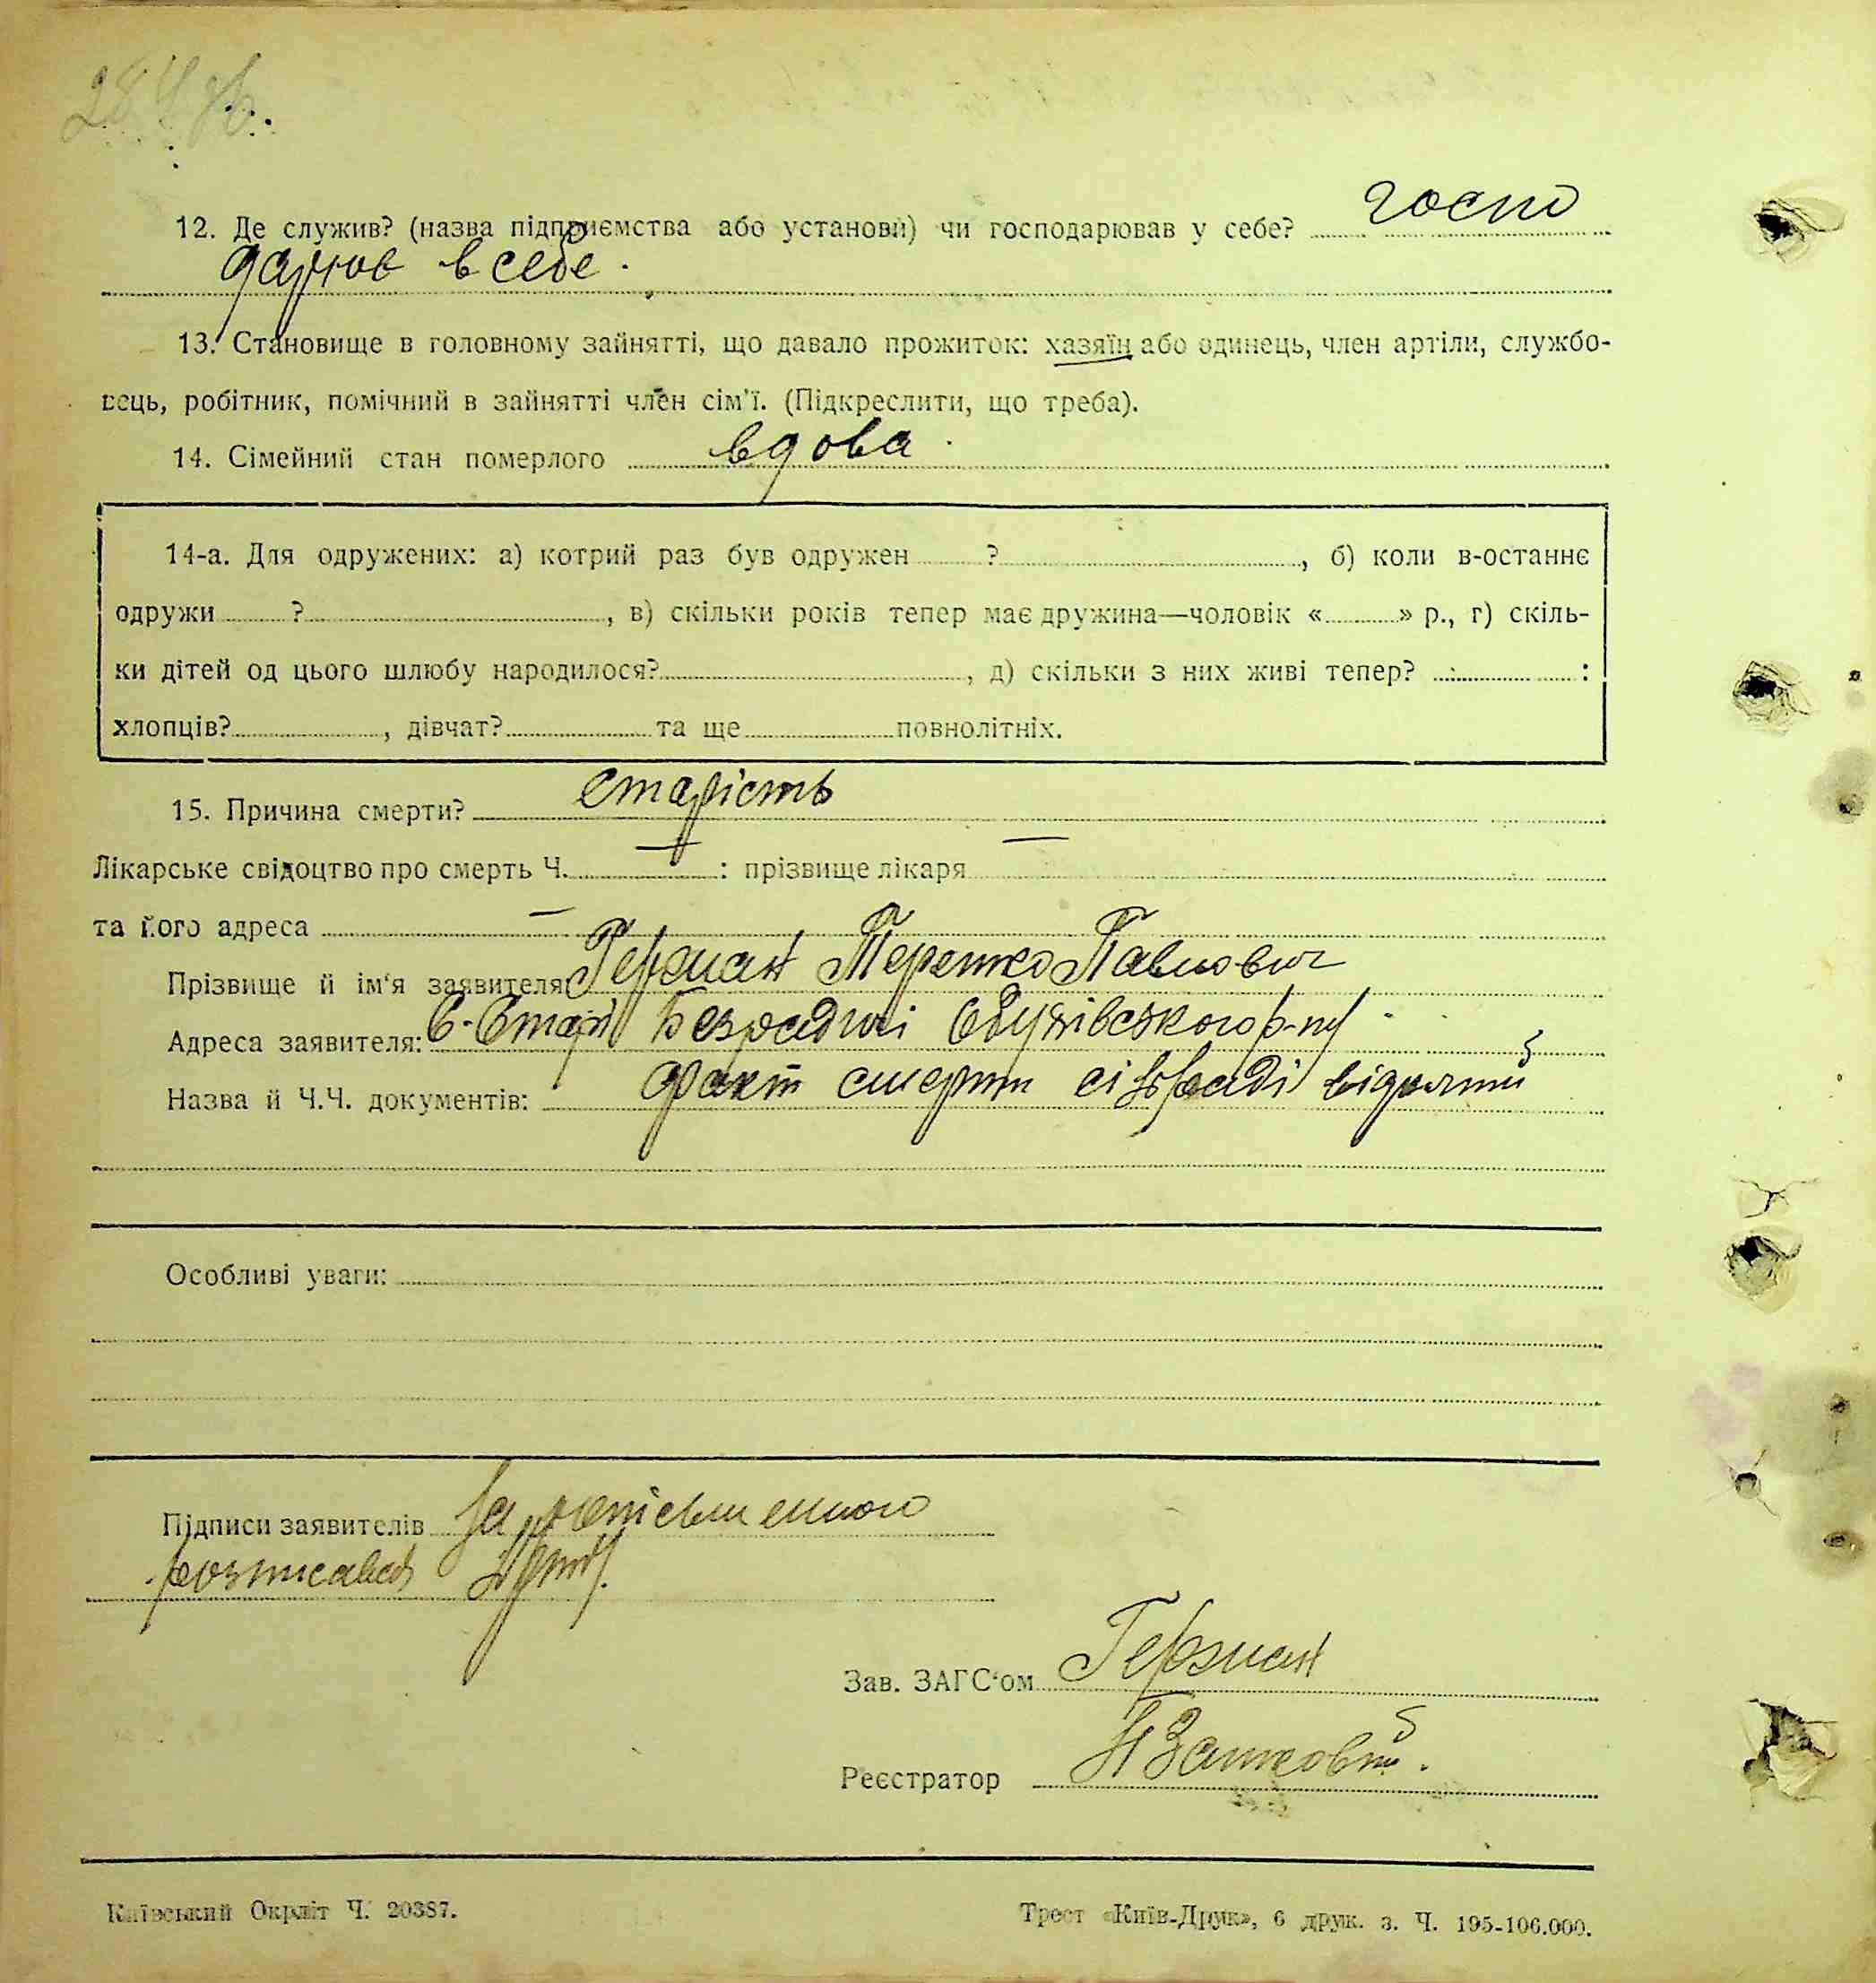 284 зв.
12. Де служив? (назва підприємства або установи) чи господарював у себе? госпо
дарює в себе.
13. Становище в головному зайнятті, що давало прожиток: хазяїн або одинець, член артіли, службо-
вець, робітник, помічний в зайнятті член сім'ї. (Підкреслити, що треба).
14. Сімейний стан померлого вдова
14-а. Для одружених: а) котрий раз був одружен ?, б) коли в-останнє
одружи ?, в) скільки років тепер має дружина—чоловік « » р., г) скіль-
ки дітей од цього шлюбу народилося?, д) скільки з них живі тепер? :
хлопців?, дівчат? та ще повнолітніх.
15. Причина смерти? старість
Лікарське свідоцтво про смерть Ч. — : прізвище лікаря —
та його адреса —
Прізвище й ім'я заявителя: Герман Терешко Павлович
Адреса заявителя: С. Старі Безрадичі Обухівського р-ну
Назва й Ч.Ч. документів: факт смерти сільраді відомий
Особливі уваги:
Підписи заявителів За неписьменного
розписавсь
Зав. ЗАГС'ом Герман
Реєстратор
Київський Окрліт Ч. 20387.
Трест «Київ-Друк», 6 друк. з. Ч. 195-106.000.